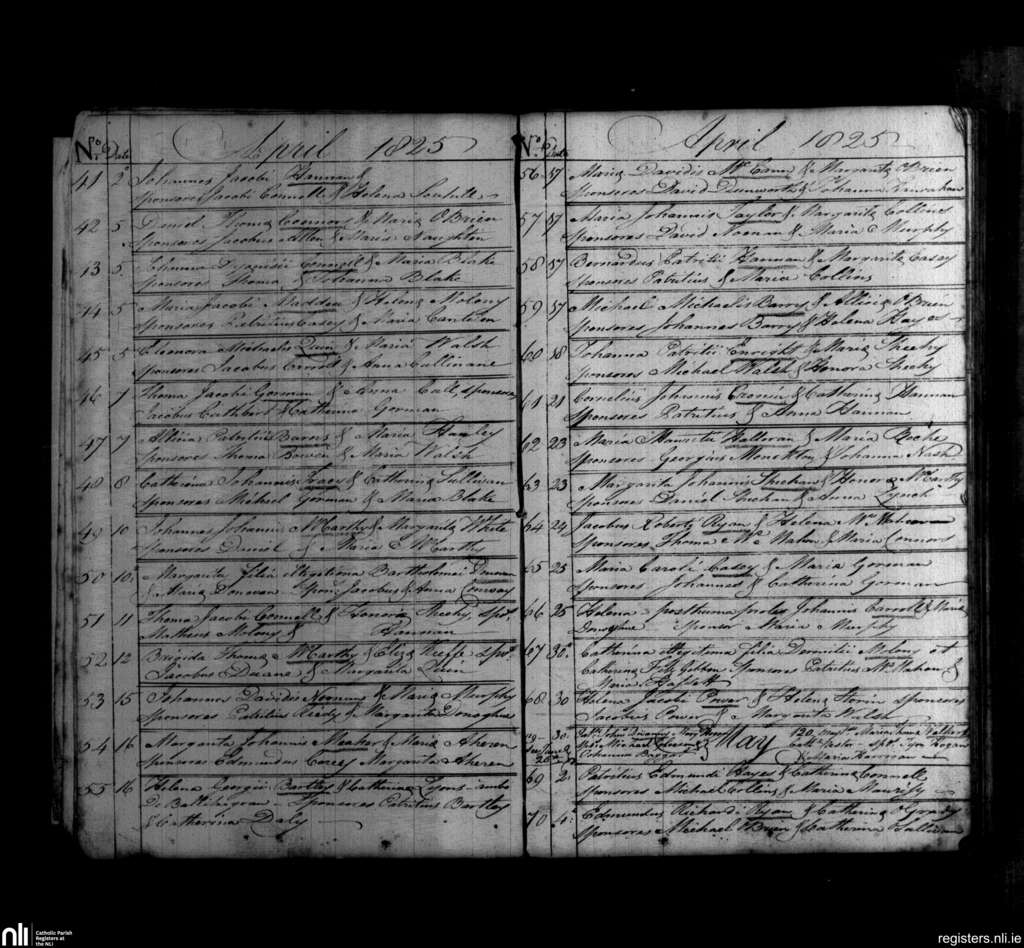 No. Date April 1825
41 2 Johannes Jacobi Hannan &
Sponsores Jacobi Connell & Helena
42 5 Daniel Thoma Connors & Maria O'Brien
Sponsores Jacobus Allen & Maria Naughton
43 5 Johanna Dyonisii Connell & Maria Blake
Sponsores Thoma & Johanna Blake
44 5 Maria Jacobi Madden & Helena Molony
Sponsores Patritius Casey & Maria
45 5 Eleonora Michaelis Quin & Maria Walsh
Sponsores Jacobus Carroll & Anna Cullinane
46 1 Thoma Jacobi Gorman & Anna sponsores
Jacobus Cuthbert & Catherina Gorman
47 7 Patritius & Maria Hanley
Sponsores Thoma Bowen & Maria Walsh
48 8 Catherina Johannis Tracy & Catherina Sullivan
sponsores Michael Gorman & Maria Blake
49 10 Johannes Johannis McCarthy & Margarita White
Sponsores Daniel & Maria McCarthy
50 10 Margarita filia illegitima Bartholomei Donovan
& Maria Donovan Spon. Jacobus & Anna Conway
51 11 Thoma Jacobi Connell & Honora Sheehy, spr.
Matheus Molony & Hannan
52 12 Brigida Thoma McCarthy & Eliza Keeffe spr.
Jacobus Duane & Margarita Quin
53 15 Johannes Davidis Noonan & Maria Murphy
Sponsores Patritius Reidy & Margarita Donoghue
54 16 Margarita Johannis Meaher & Maria Aheren
Sponsores Edmundus Carey Margarita Aheren
55 16 Helena Georgii Bartley & Catherina Lyons ambo
De Sponsores Patritius Bartley
& Catherina Daly
No. Date April 1825
56 17 Maria Davidis McCann & Margarita O'Brien
Sponsores David Dunworth & Johanna
57 17 Maria Johannis Taylor & Margarita Collins
Sponsores David Noonan & Maria Murphy
58 17 Bernardus Patritii Hannan & Margarita Casey
Sponsores Patritius & Maria Collins
59 17 Michael Michaelis Barry & O'Brien
Sponsores Johannes Barry & Helena Hayes
60 18 Johanna Patritii Enright & Maria Sheehy
Sponsores Michael Walsh & Honora Sheehy
61 21 Cornelius Johannis Cronin & Catherina Hannan
Sponsores Patritius & Anna Hannan
62 23 Maria Mauritii Halloran & Maria Roche
Sponsores Georgius Monckton & Johanna Nash
63 23 Margarita Johannis Sheehan & Honora McCarthy
Sponsores Daniel Sheehan & Anna Lynch
64 24 Jacobus Roberti Ryan & Helena
Sponsores Thoma McMahon & Maria Connors
65 25 Maria Caroli Casey & Maria Gorman
Sponsores Johannes & Catherina Gorman
66 25 Helena posthuma proles Johannis Carroll & Maria
Donoghue Sponsor Maria Murphy
67 30 Catherina illegitima filia Dermitii Molony et
Catherina Fitz Gibbon. Sponsores Patritius McMahon &
Maria
68 30 Helena Jacobi Power & Helena sponsores
Jacobus Power & Margarita Walsh
30 May
Michael
Johanna
& Maria Hannigan
69 2 Patritius Edmundi Hayes & Catherina Connell
Sponsores Michael Collins & Maria
70 4 Edmundus Richardi Ryan & Catherina
Sponsores Michael O'Brien & Catherina
nli Catholic Parish
Registers at
the NLI
registers.nli.ie